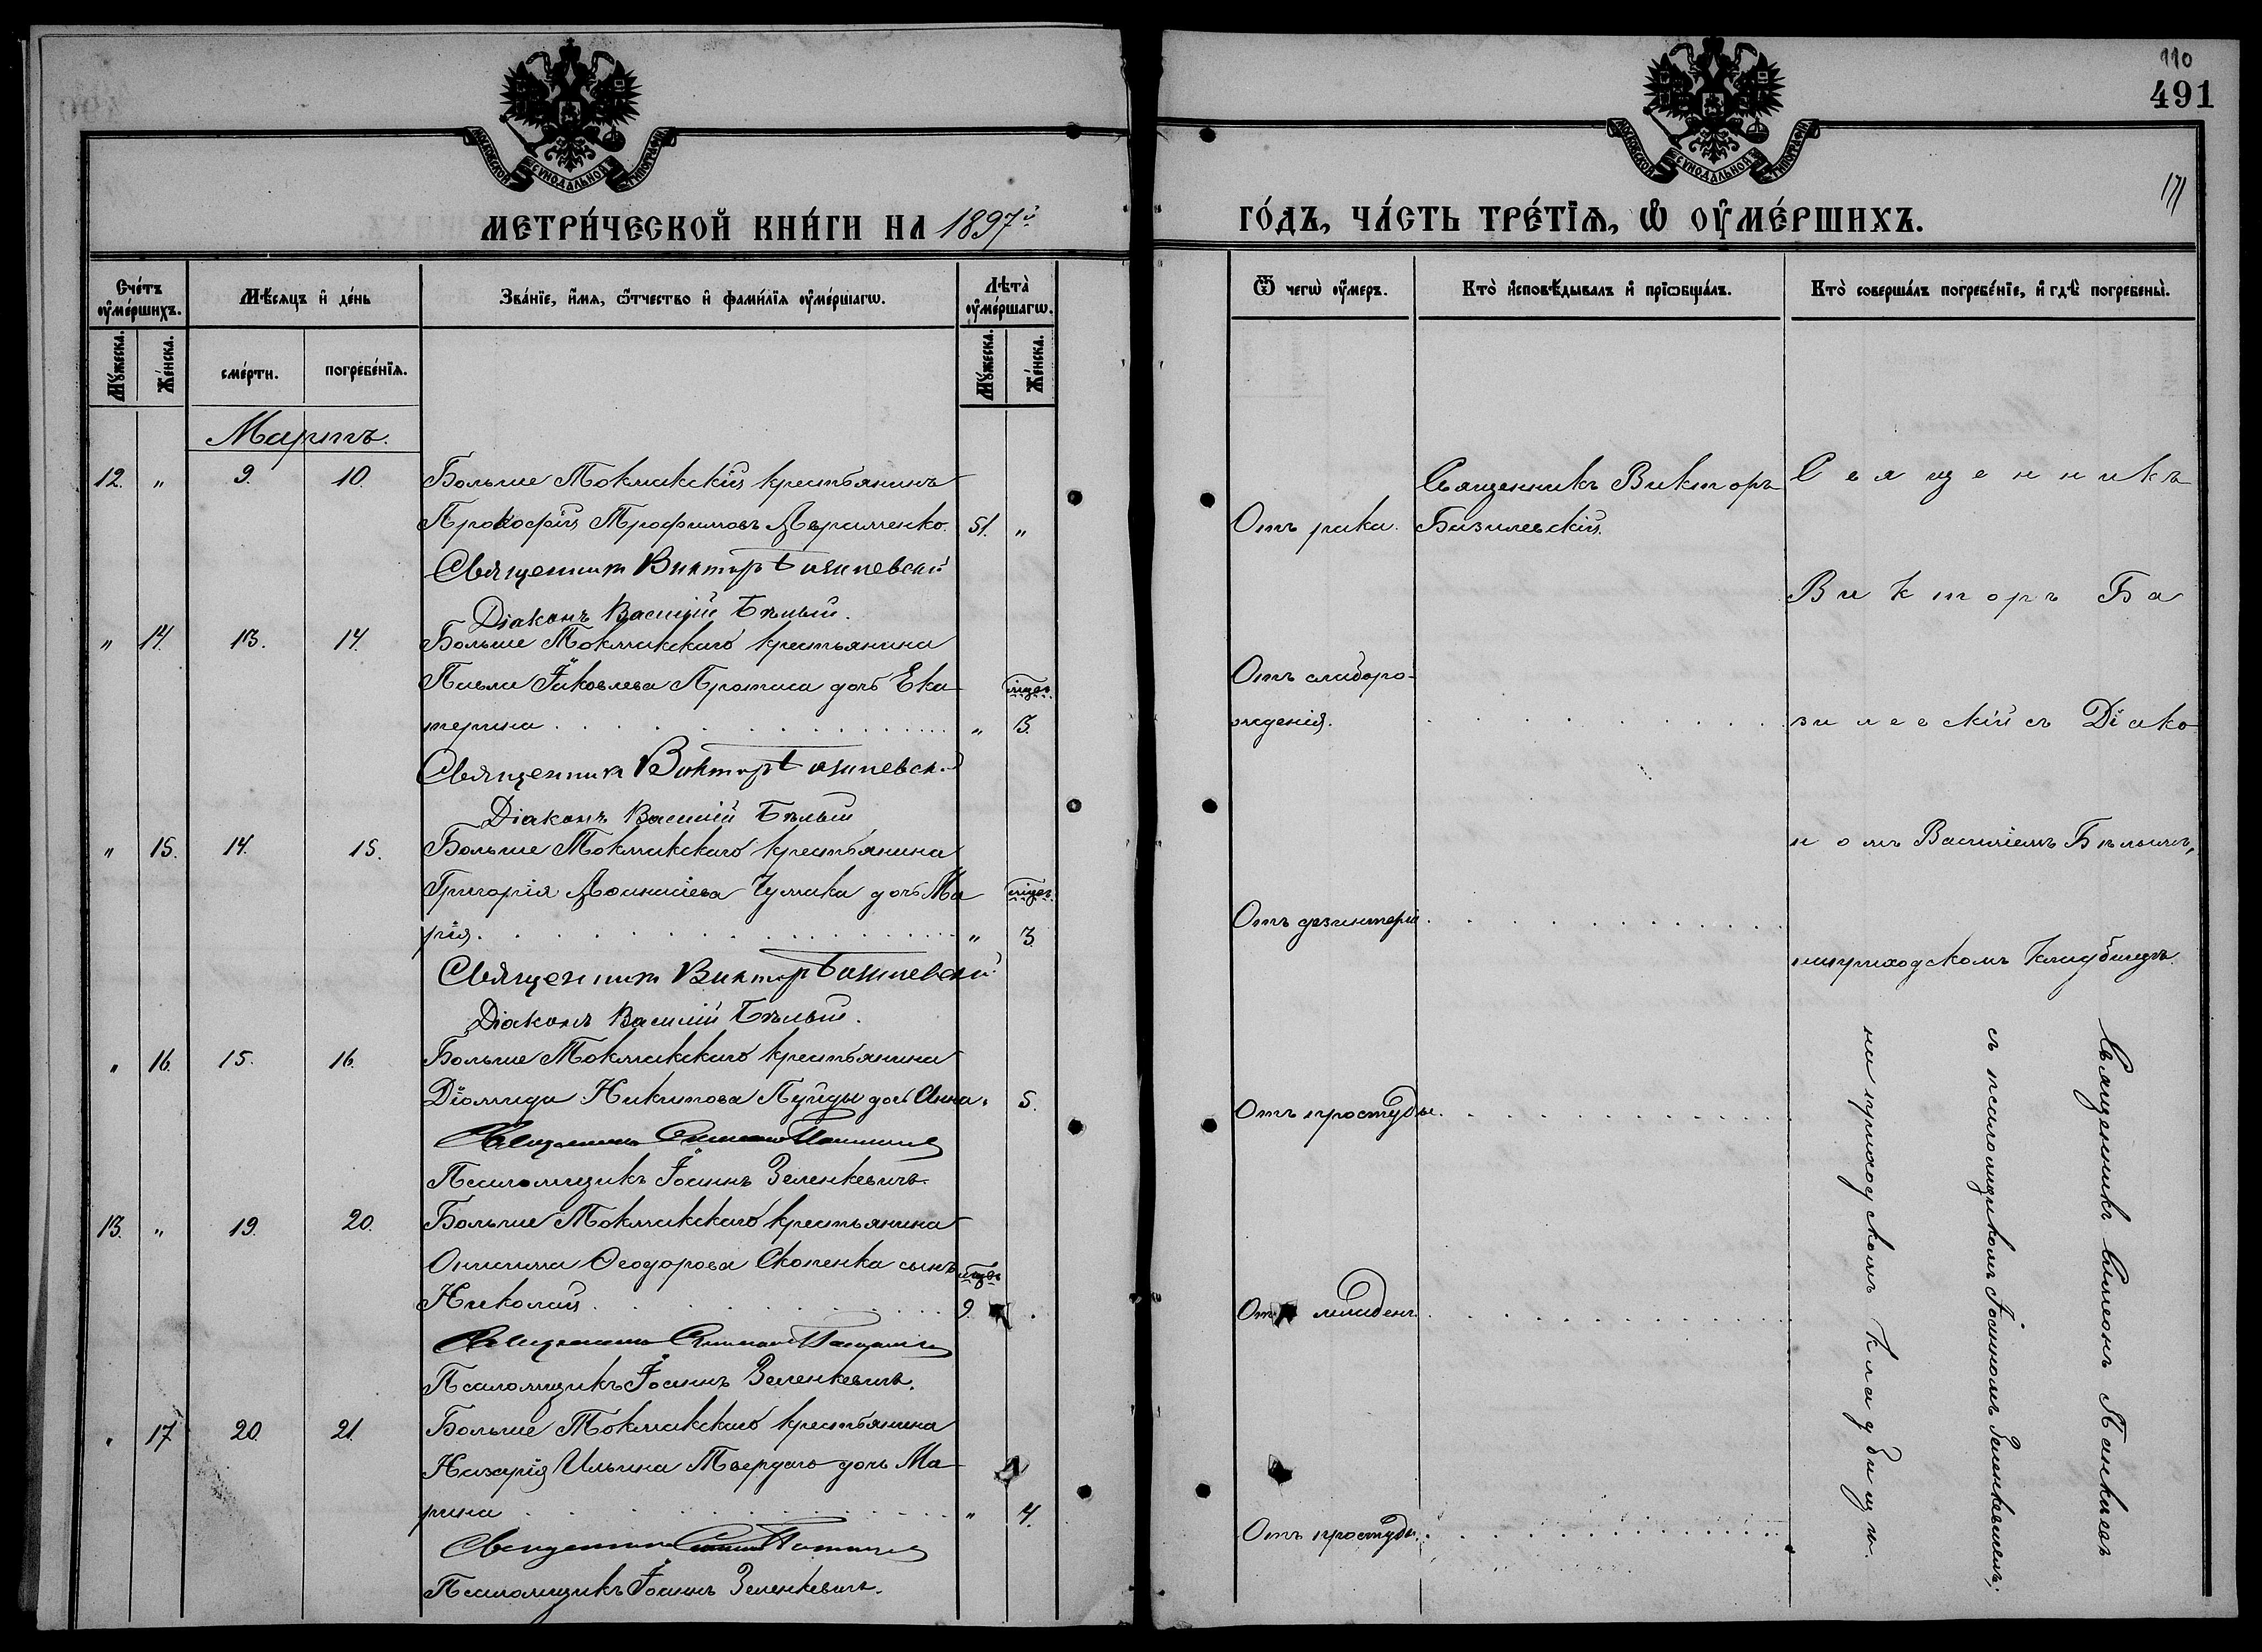 МОСКОВСКОЙ СУНОДАЛЬНОЙ ТИПОГРАФІИ
МЕТРИ́ЧЕСКОЙ КНИ́ГИ НА 1897й
Сче́тъ оу҆ме́ршихъ.
Мѣ́сяцъ и҆ де́нь
Зва́нїе, и҆́мя, ѻ҆́тчество и҆ фами́лїя оу҆ме́ршагѡ.
Лѣта̀ оу҆ме́ршагѡ.
Мꙋ́жеска.
Же́нска.
сме́рти.
погребе́нїя.
Мꙋ́жеска.
Же́нска.
Мартъ.
12. " 9. 10. Больше Токмакскій крестьянинъ
Прокофій Трофимовъ Авраменко. 51. "
Священникъ Викторъ Базилевскій
Діаконъ Василій Бѣлый.
" 14. 13. 14. Больше Токмакскаго крестьянина
Павла Іаковлева Протаса дочь Ека-
терина " мѣсяц. 3.
Священникъ Викторъ Базилевскій
Діаконъ Василій Бѣлый
" 15. 14. 15. Больше Токмакскаго крестьянина
Григорія Аѳанасіева Чумака дочь Ма
рія. " мѣсяц. 3.
Священникъ Викторъ Базилевскій
Діаконъ Василій Бѣлый.
" 16. 15. 16. Больше Токмакскаго крестьянина
Діомида Никитова Пуйды дочь Анна. 5.
Священникъ Симеонъ
Псаломщикъ Іоаннъ Зеленкевичъ.
13. " 19. 20. Больше Токмакскаго крестьянина
Онисима Ѳеодорова Скопенка сынъ
Николай. мѣсяц. 9.
Священникъ Симеонъ
Псаломщикъ Іоаннъ Зеленкевичъ.
" 17 20. 21. Больше Токмакскаго крестьянина
Назарія Ильина Твердаго дочь Ма-
рина " 4.
Священникъ Симеонъ
Псаломщикъ Іоаннъ Зеленкевичъ.
110
491
171
МОСКОВСКОЙ СУНОДАЛЬНОЙ ТИПОГРАФІИ
ГО́ДЪ, ЧА́СТЬ ТРЕ́ТЇЯ, Ѡ҆ ОУ҆МЕ́РШИХЪ.
Ѿ чегѡ̀ оу҆́меръ.
Кто̀ и҆сповѣ́дывалъ и҆ прїѡбща́лъ.
Кто̀ соверша́лъ погребе́нїе, и҆ гдѣ̀ погребены̀.
Отъ рака.
Священникъ Викторъ
Базилевскій.
Отъ слаборо-
жденія.
Отъ дезинтеріи
Отъ простуды.
Отъ младен.
Отъ простуды.
Священникъ
Викторъ Ба
зилевскій съ Діако
номъ Василіемъ Бѣлымъ,
на приходскомъ кладбищѣ.
Священникъ Симеонъ
съ псаломщикомъ Іоанномъ Зеленкевичемъ,
на приходскомъ кладбищѣ.